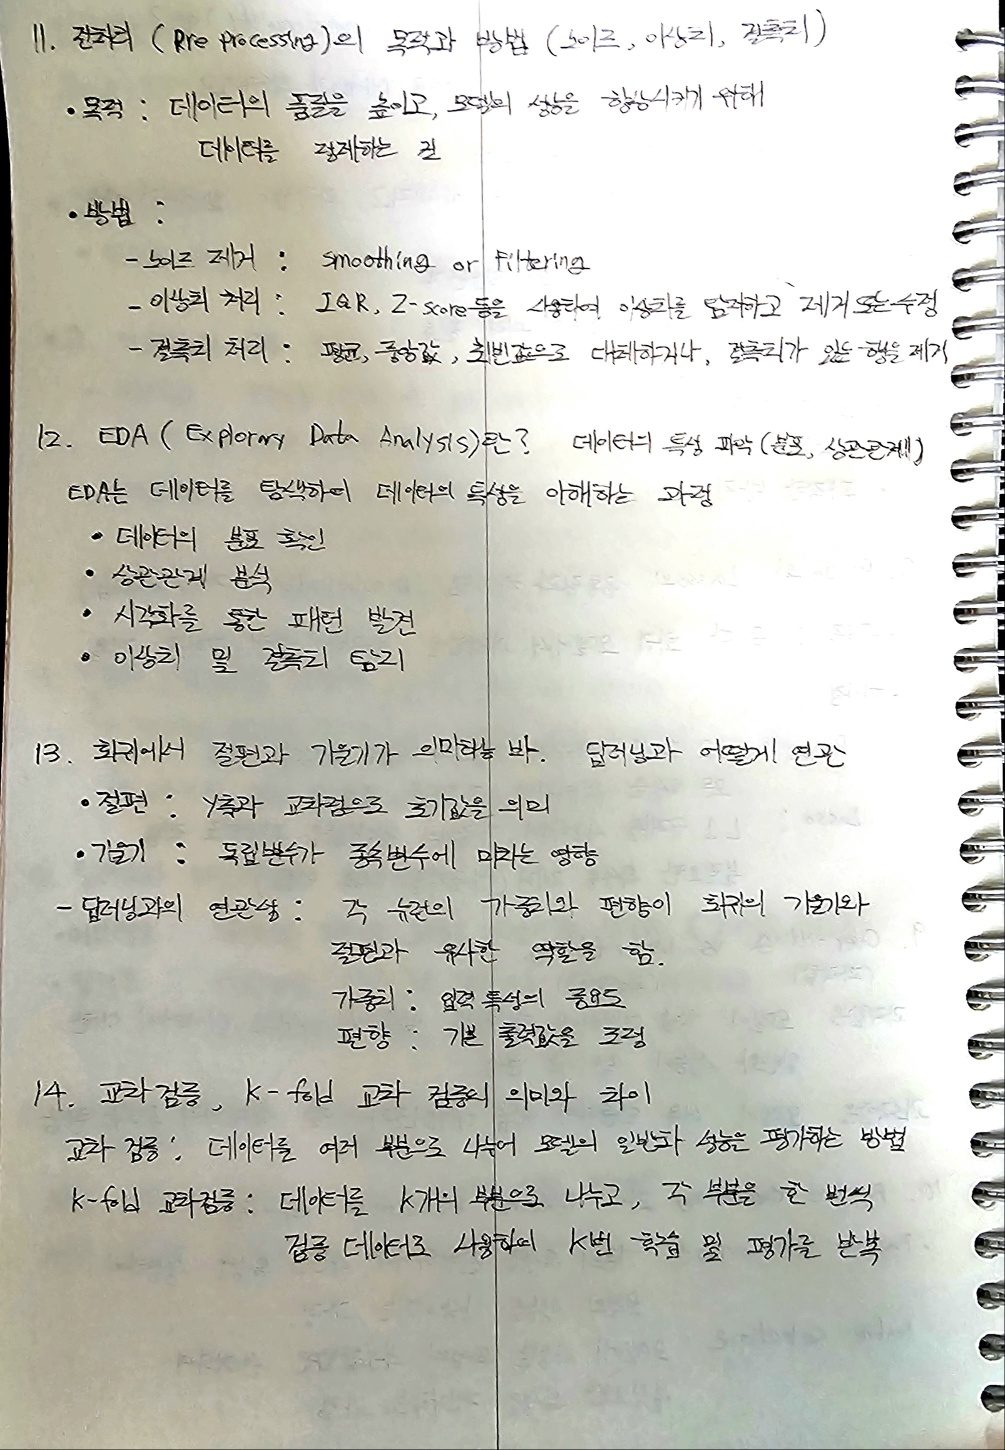 11. 전처리 (Pre processing)의 목적과 방법 (노이즈, 이상치, 결측치)
• 목적 : 데이터의 품질을 높이고, 모델의 성능을 향상시키기 위해
데이터를 정제하는 것
• 방법 :
- 노이즈 제거 : smoothing or Filtering
- 이상치 처리 : IQR, Z-score 등을 사용하여 이상치를 탐지하고 제거 또는 수정
- 결측치 처리 : 평균, 중앙값, 최빈값으로 대체하거나, 결측치가 있는 행을 제거
12. EDA ( Explorary Data Analysis)란? 데이터의 특성 파악 (분포, 상관관계)
EDA는 데이터를 탐색하여 데이터의 특성을 이해하는 과정
• 데이터의 분포 확인
• 상관관계 분석
• 시각화를 통한 패턴 발견
• 이상치 및 결측치 탐지
13. 회귀에서 절편과 기울기가 의미하는 바. 딥러닝과 어떻게 연관
• 절편 : Y축과 교차점으로 초기값을 의미
• 기울기 : 독립변수가 종속변수에 미치는 영향
- 딥러닝과의 연관성 : 각 뉴런의 가중치와 편향이 회귀의 기울기와
절편과 유사한 역할을 함.
가중치 : 입력 특성의 중요도
편향 : 기본 출력값을 조정
14. 교차 검증, K-fold 교차 검증의 의미와 차이
교차 검증 : 데이터를 여러 부분으로 나누어 모델의 일반화 성능을 평가하는 방법
K-fold 교차검증 : 데이터를 K개의 부분으로 나누고, 각 부분을 한 번씩
검증 데이터로 사용하여 K번 학습 및 평가를 반복